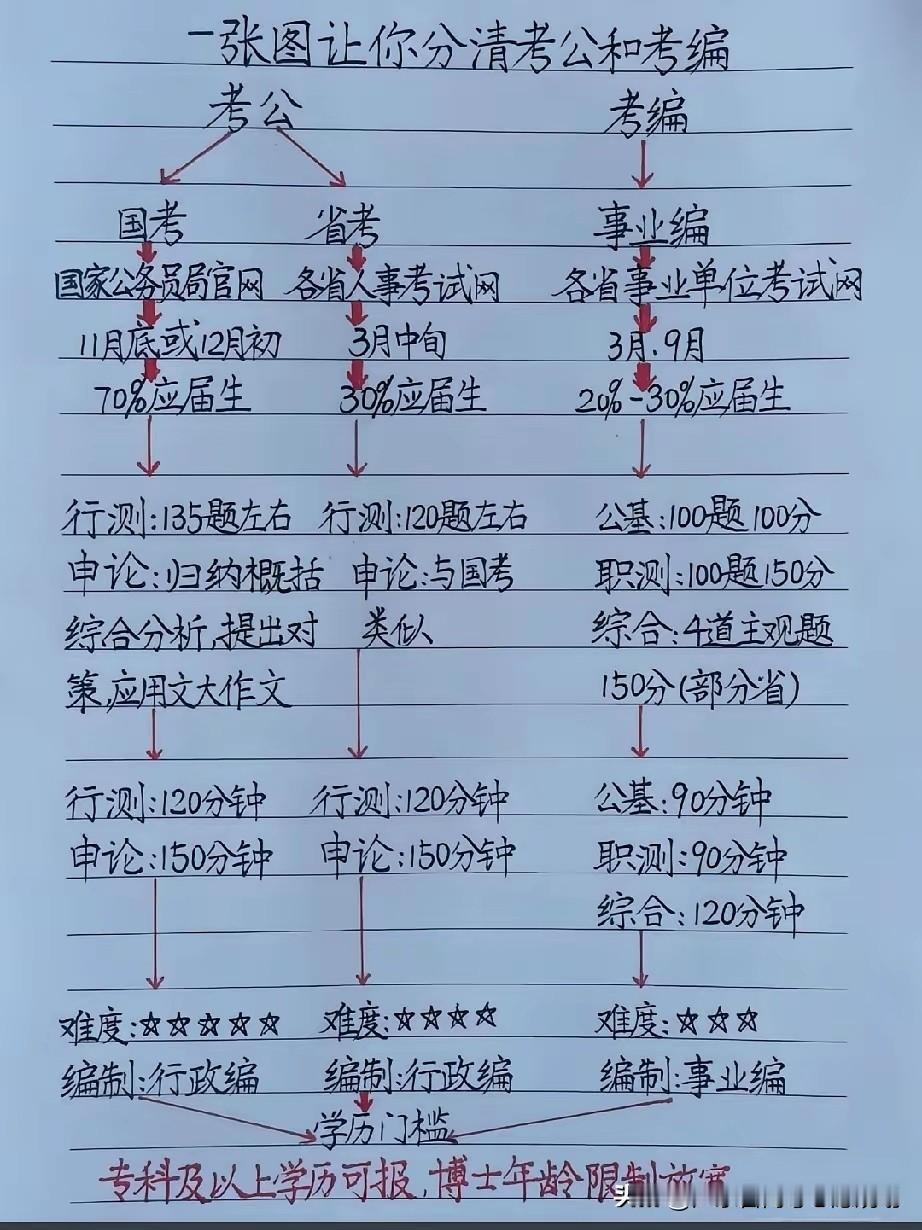 一张图让你分清考公和考编
考公 考编
国考 省考 事业编
国家公务员局官网 各省人事考试网 各省事业单位考试网
11月底或12月初 3月中旬 3月、9月
70%应届生 30%应届生 20%-30%应届生
行测:135题左右 行测:120题左右 公基:100题100分
申论:归纳概括 申论:与国考 职测:100题150分
综合分析,提出对 类似 综合:4道主观题
策,应用文大作文 150分(部分省)
行测:120分钟 行测:120分钟 公基:90分钟
申论:150分钟 申论:150分钟 职测:90分钟
综合:120分钟
难度:☆☆☆☆☆ 难度:☆☆☆☆ 难度:☆☆☆
编制:行政编 编制:行政编 编制:事业编
学历门槛
专科及以上学历可报,博士年龄限制放宽